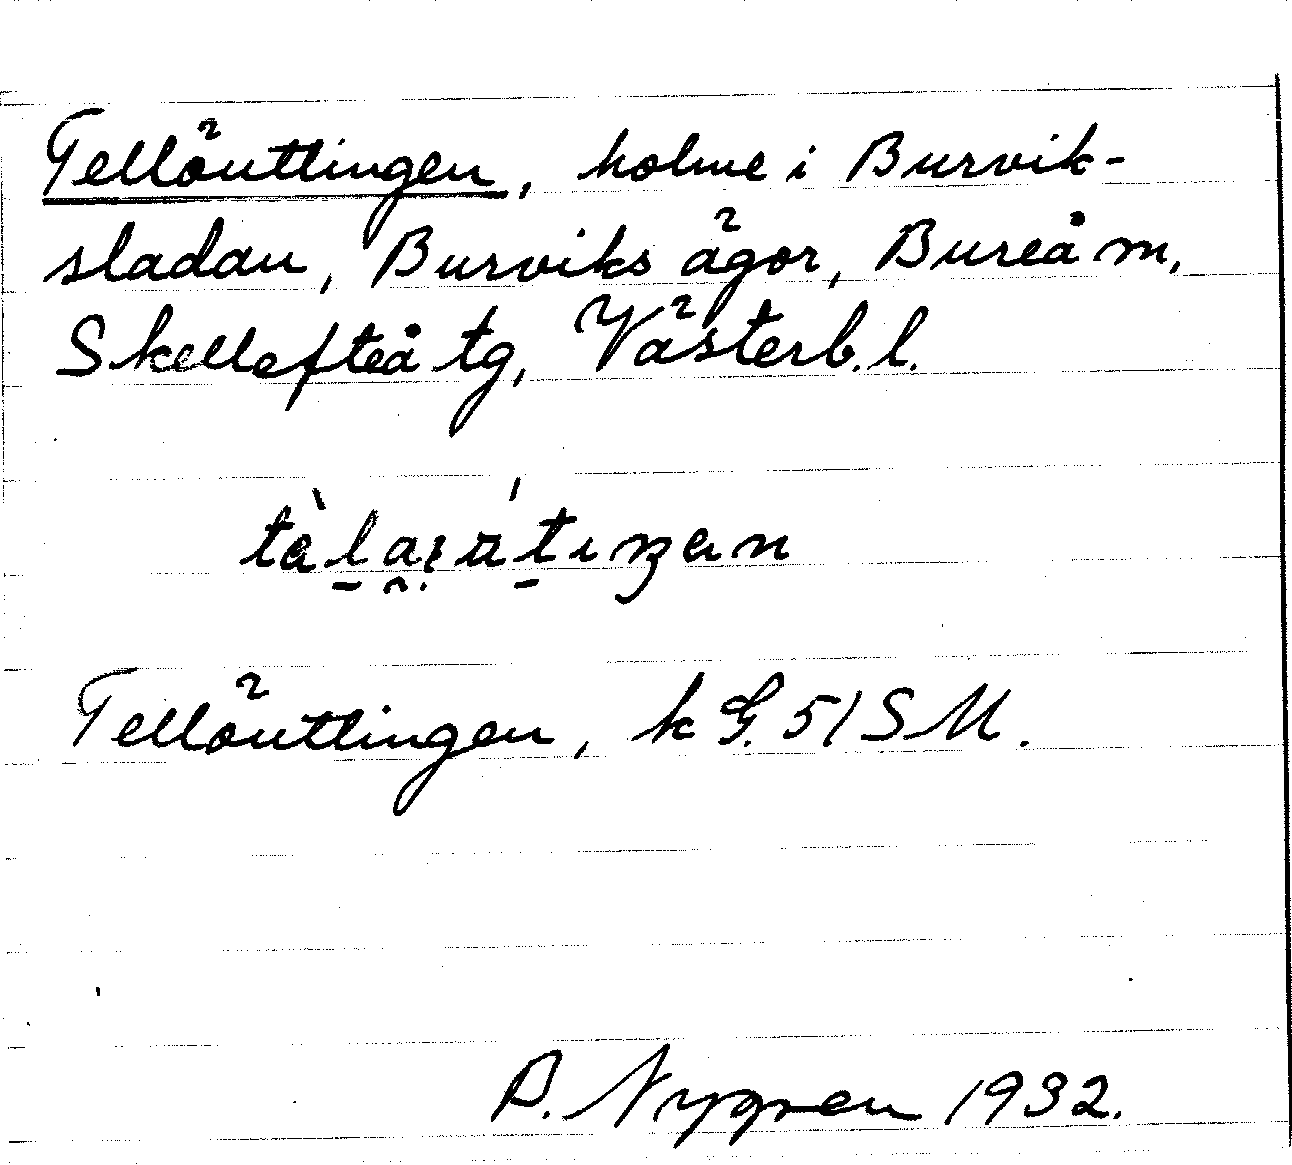 Tellöuttingen, holme i Burvik-
sladan, Burviks ägor, Bureå m,
Skellefteå tg, Västerb. l.
Tellöuttingen, k G. 51 S M.
Nygren 1932.